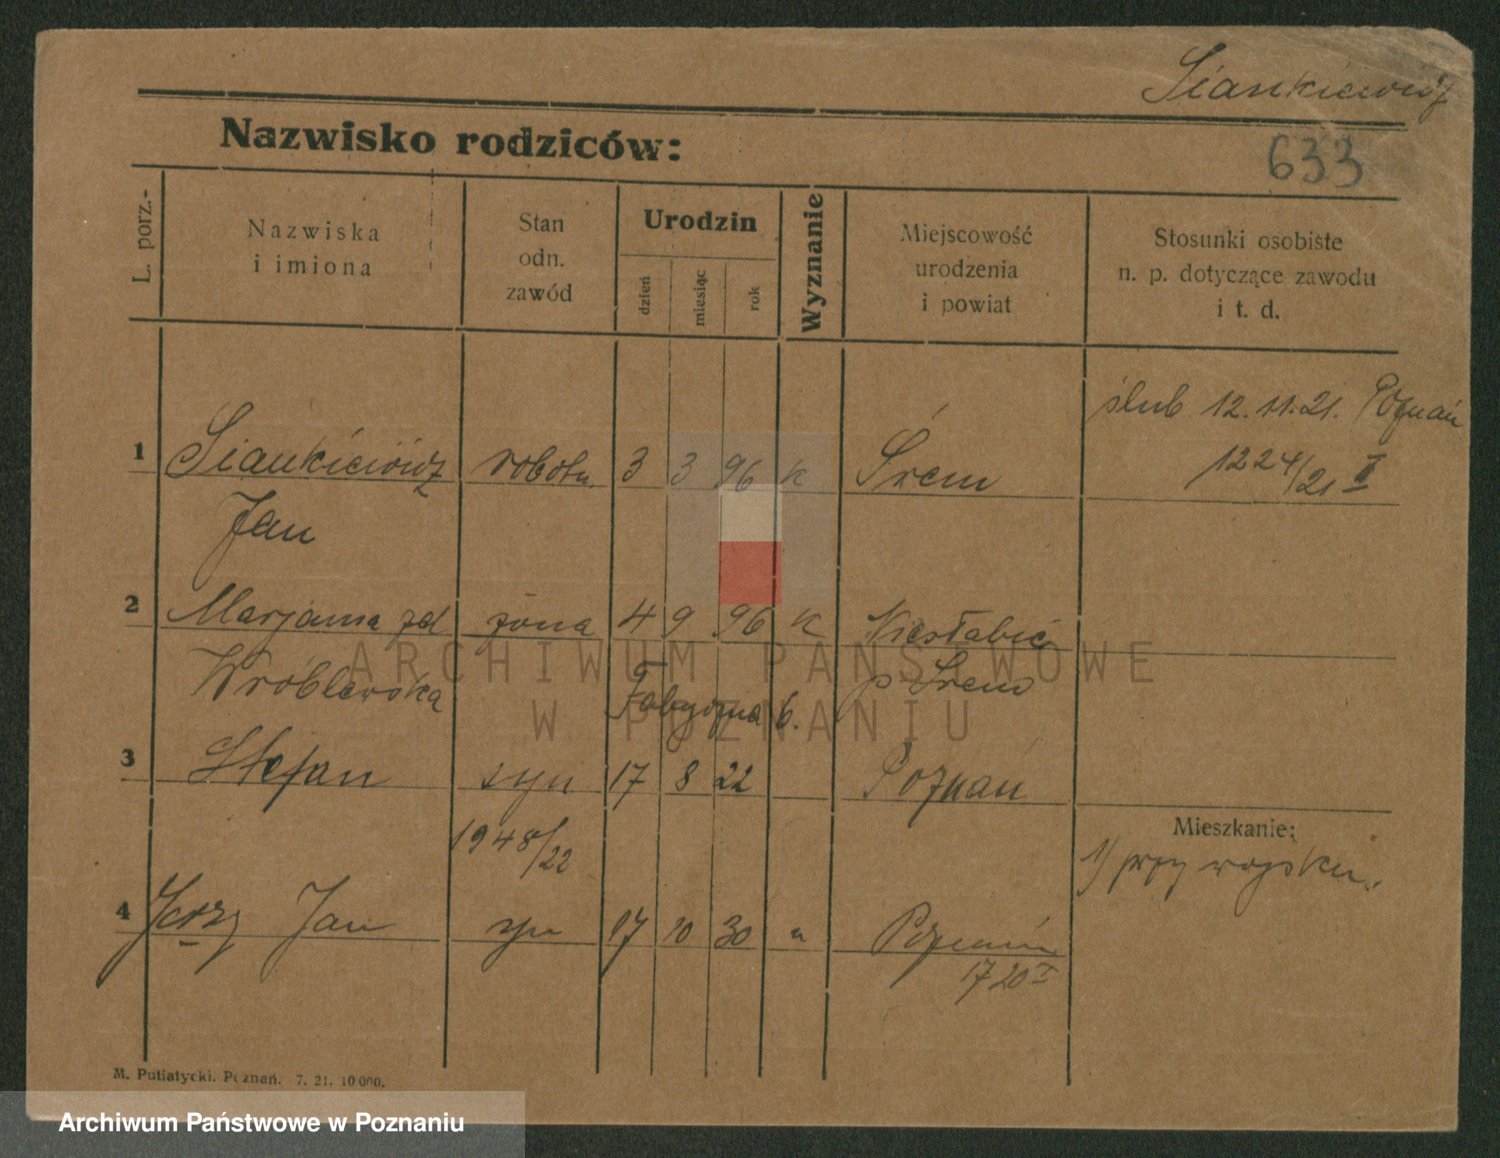 Siankiewicz
Nazwisko rodziców:
633
L. porz.-
Nazwiska
i imiona
Stan
odn.
zawód
Urodzin
dzień
miesiąc
rok
Wyznanie
Miejscowość
urodzenia
i powiat
Stosunki osobiste
n. p. dotyczące zawodu
i t. d.
ślub 12.11.21. Poznań
1 Siankiewicz robotn. 3 3 96 k Śrem 1224/21 II
Jan
2 Marjanna zd żona 4 9 96 k Niesłabin
Wróblewska Fabryczna 6. p Śrem
ARCHIWUM PAŃSTWOWE
W POZNANIU
3 Stefan syn 17 8 22 Poznań
1948/22
Mieszkanie:
1) przy wojsku.
4 Jerzy Jan syn 17 10 30 " Poznań
1720 II
M. Putiatycki. Poznań. 7. 21. 10 000.
Archiwum Państwowe w Poznaniu